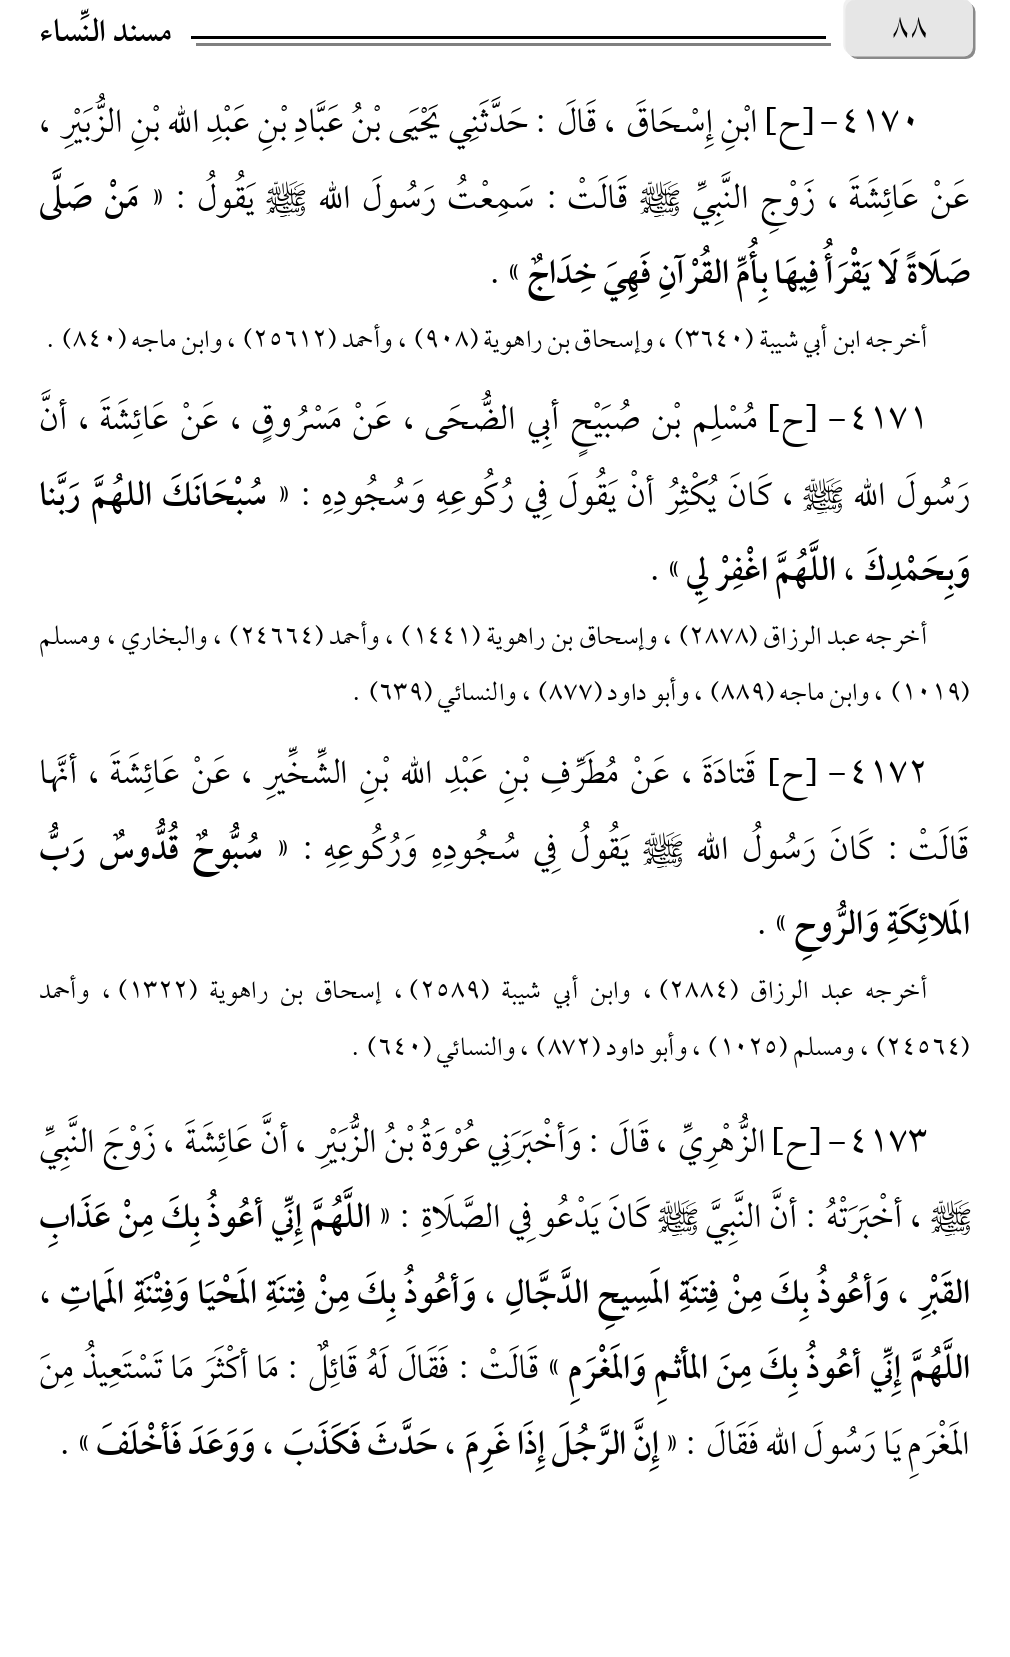 ٨٨ مسند النِّساء
٤١٧٠- [ح] ابْنِ إِسْحَاقَ ، قَالَ : حَدَّثَنِي يَحْيَى بْنُ عَبَّادِ بْنِ عَبْدِ الله بْنِ الزُّبَيْرِ ،
عَنْ عَائِشَةَ ، زَوْجِ النَّبِيِّ ﷺ قَالَتْ : سَمِعْتُ رَسُولَ الله ﷺ يَقُولُ : « مَنْ صَلَّى
صَلَاةً لَا يَقْرَأُ فِيهَا بِأُمِّ القُرْآنِ فَهِيَ خِدَاجٌ » .
أخرجه ابن أبي شيبة (٣٦٤٠) ، وإسحاق بن راهوية (٩٠٨) ، وأحمد (٢٥٦١٢) ، وابن ماجه (٨٤٠) .
٤١٧١- [ح] مُسْلِم بْن صُبَيْحٍ أبِي الضُّحَى ، عَنْ مَسْرُوقٍ ، عَنْ عَائِشَةَ ، أنَّ
رَسُولَ الله ﷺ ، كَانَ يُكْثِرُ أنْ يَقُولَ فِي رُكُوعِهِ وَسُجُودِهِ : « سُبْحَانَكَ اللهُمَّ رَبَّنا
وَبِحَمْدِكَ ، اللَّهُمَّ اغْفِرْ لِي » .
أخرجه عبد الرزاق (٢٨٧٨) ، وإسحاق بن راهوية (١٤٤١) ، وأحمد (٢٤٦٦٤) ، والبخاري ، ومسلم
(١٠١٩) ، وابن ماجه (٨٨٩) ، وأبو داود (٨٧٧) ، والنسائي (٦٣٩) .
٤١٧٢- [ح] قَتادَةَ ، عَنْ مُطَرِّفِ بْنِ عَبْدِ الله بْنِ الشِّخِّيرِ ، عَنْ عَائِشَةَ ، أنَّها
قَالَتْ : كَانَ رَسُولُ الله ﷺ يَقُولُ فِي سُجُودِهِ وَرُكُوعِهِ : « سُبُّوحٌ قُدُّوسٌ رَبُّ
المَلائِكَةِ وَالرُّوحِ » .
أخرجه عبد الرزاق (٢٨٨٤) ، وابن أبي شيبة (٢٥٨٩) ، إسحاق بن راهوية (١٣٢٢) ، وأحمد
(٢٤٥٦٤) ، ومسلم (١٠٢٥) ، وأبو داود (٨٧٢) ، والنسائي (٦٤٠) .
٤١٧٣- [ح] الزُّهْرِيِّ ، قَالَ : وَأخْبَرَنِي عُرْوَةُ بْنُ الزُّبَيْرِ ، أنَّ عَائِشَةَ ، زَوْجَ النَّبِيِّ
ﷺ ، أخْبَرَتْهُ : أنَّ النَّبِيَّ ﷺ كَانَ يَدْعُو فِي الصَّلَاةِ : « اللَّهُمَّ إِنِّي أعُوذُ بِكَ مِنْ عَذَابِ
القَبْرِ ، وَأعُوذُ بِكَ مِنْ فِتنَةِ المَسِيحِ الدَّجَّالِ ، وَأعُوذُ بِكَ مِنْ فِتنَةِ المَحْيَا وَفِتْنَةِ المَماتِ ،
اللَّهُمَّ إِنِّي أعُوذُ بِكَ مِنَ المأثمِ وَالمَغْرَمِ » قَالَتْ : فَقَالَ لَهُ قَائِلٌ : مَا أكْثَرَ مَا تَسْتَعِيذُ مِنَ
المَغْرَمِ يَا رَسُولَ الله فَقَالَ : « إِنَّ الرَّجُلَ إِذَا غَرِمَ ، حَدَّثَ فَكَذَبَ ، وَوَعَدَ فَأخْلَفَ » .